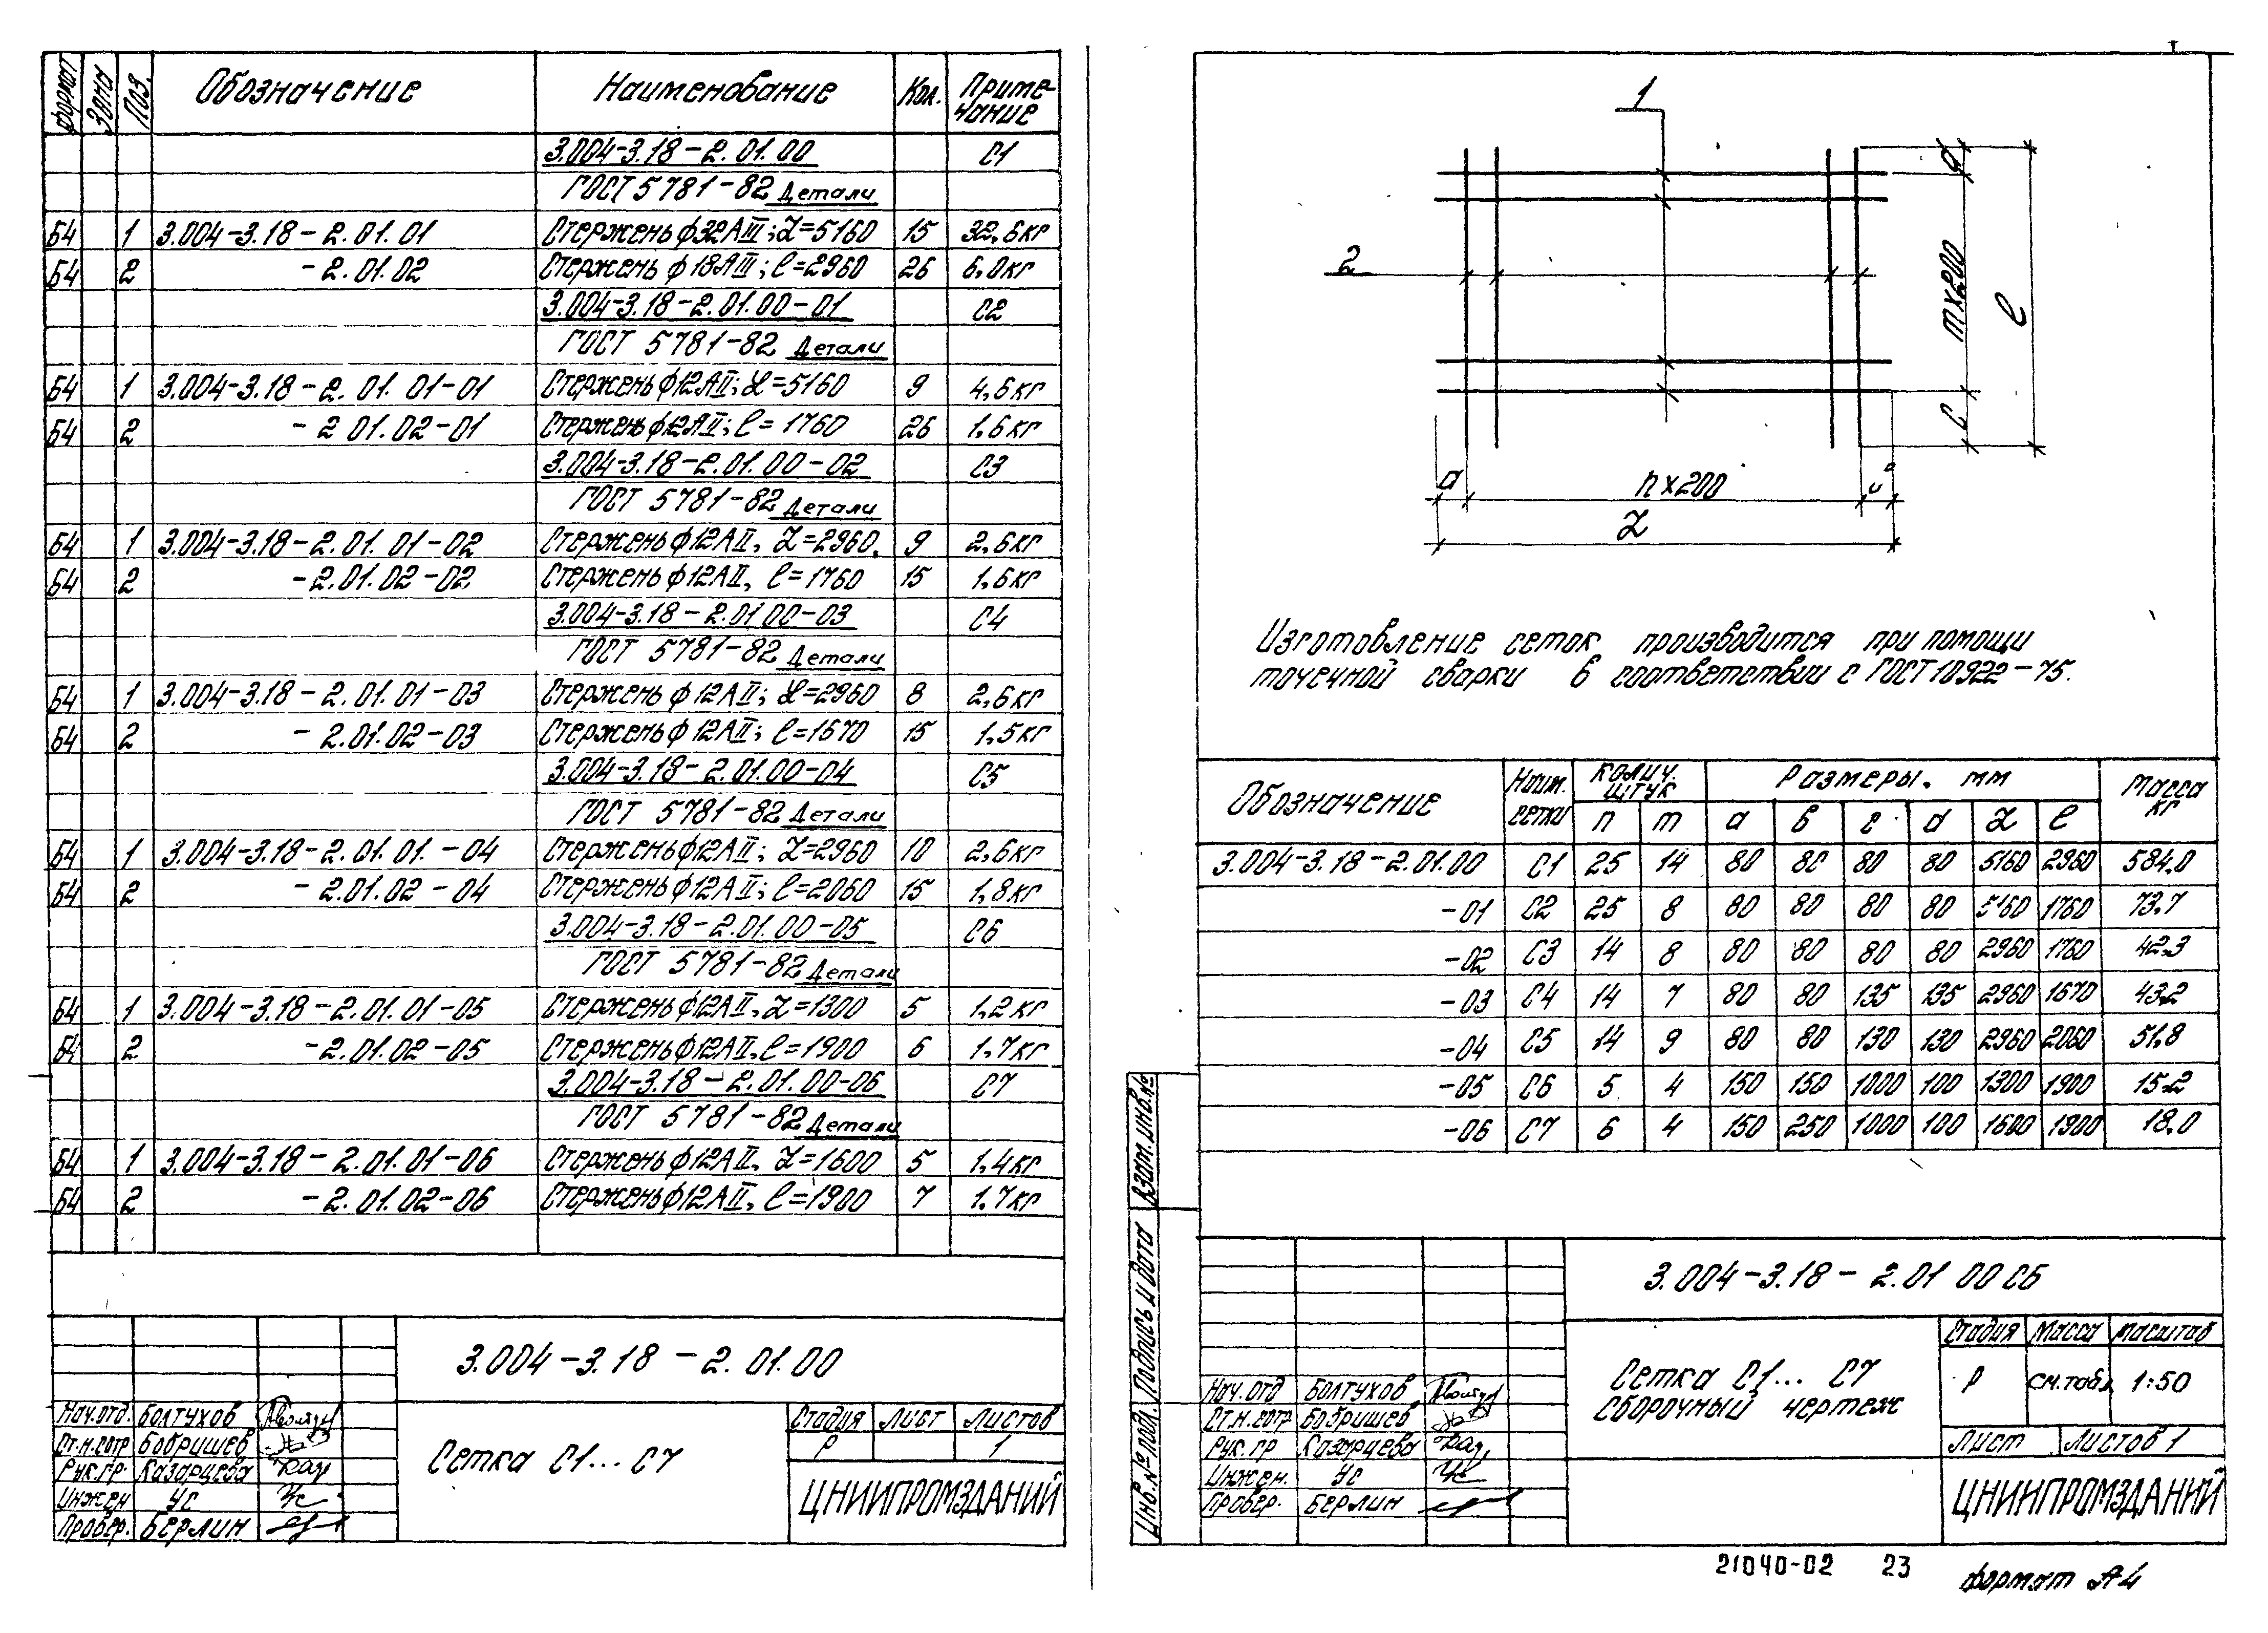 Формат Зона Поз. Обозначение Наименование Кол. Примечание
3.004-3.18-2.01.00 С1
ГОСТ 5781-82 Детали
Б4 1 3.004-3.18-2.01.01 Стержень ф32АIII; L=5160 15 32,6кг
Б4 2 -2.01.02 Стержень ф18АIII; l=2960 26 6,0кг
3.004-3.18-2.01.00-01 С2
ГОСТ 5781-82 Детали
Б4 1 3.004-3.18-2.01.01-01 Стержень ф12АII; L=5160 9 4,6кг
Б4 2 -2 01.02-01 Стержень ф12АII; l=1760 26 1,6кг
3.004-3.18-2.01.00-02 С3
ГОСТ 5781-82 Детали
Б4 1 3.004-3.18-2.01.01-02 Стержень ф12АII, L=2960, 9 2,6кг
Б4 2 -2.01.02-02 Стержень ф12АII, l=1760 15 1,6кг
3.004-3.18-2.01 00-03 С4
ГОСТ 5781-82 Детали
Б4 1 3.004-3.18-2.01.01-03 Стержень ф12АII; L=2960 8 2,6кг
Б4 2 -2.01.02-03 Стержень ф12АII; l=1670 15 1,5кг
3.004-3.18-2.01.00-04 С5
ГОСТ 5781-82 Детали
Б4 1 3.004-3.18-2.01.01.-04 Стержень ф12АII; L=2960 10 2,6кг
Б4 2 -2.01.02-04 Стержень ф12АII; l=2060 15 1,8кг
3.004-3.18-2.01.00-05 С6
ГОСТ 5781-82 Детали
Б4 1 3.004-3.18-2.01.01-05 Стержень ф12АII, L=1300 5 1,2кг
Б4 2 -2.01.02-05 Стержень ф12АII, l=1900 6 1,7кг
3.004-3.18-2.01.00-06 С7
ГОСТ 5781-82 Детали
Б4 1 3.004-3.18-2.01.01-06 Стержень ф12АII, L=1600 5 1,4кг
Б4 2 -2.01.02-06 Стержень ф12АII, l=1900 7 1,7кг
3.004-3.18-2.01.00
Нач.отд. Болтухов
Ст.н.сотр Бобришев
Рук.гр. Казарцева
Инжен Ус
Провер. Берлин
Сетка С1...С7
Стадия Лист Листов
Р 1
ЦНИИПРОМЗДАНИЙ
1
2
d
m×200
l
c
a
n×200
L
Изготовление сеток производится при помощи
точечной сварки в соответствии с ГОСТ 10922-75.
Обозначение Наим. сетки Колич. штук Размеры, мм Масса кг
n m a б c d L l
3.004-3.18-2.01.00 С1 25 14 80 80 80 80 5160 2960 584.0
-01 С2 25 8 80 80 80 80 5160 1760 73.7
-02 С3 14 8 80 80 80 80 2960 1760 42.3
-03 С4 14 7 80 80 135 135 2960 1670 43.2
-04 С5 14 9 80 80 130 130 2960 2060 51.8
-05 С6 5 4 150 150 1000 100 1300 1900 15.2
-06 С7 6 4 150 250 1000 100 1600 1900 18.0
Инв.№ подл. Подпись и дата Взам.инв.№
3.004-3.18-2.01 00 СБ
Нач.отд Болтухов
Ст.н.сотр Бобришев
Рук.гр Казарцева
Инжен. Ус
Провер. Берлин
Сетка С1...С7
сборочный чертеж
Стадия Масса Масштаб
Р см.табл 1:50
Лист Листов 1
ЦНИИПРОМЗДАНИЙ
21040-02 23
формат А4